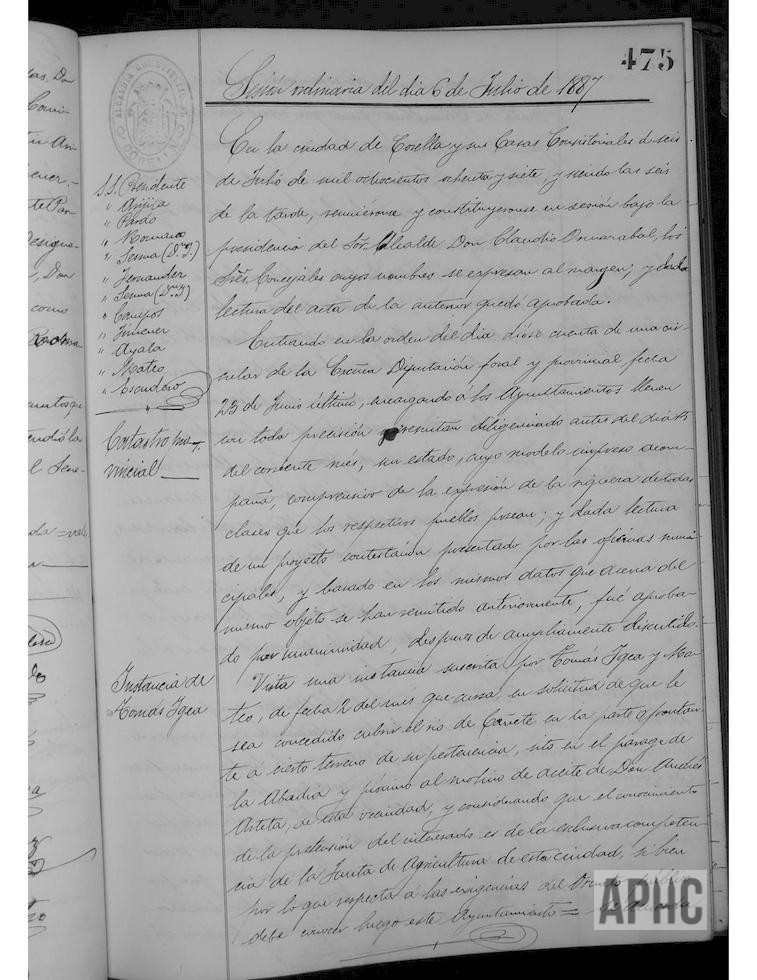 475
ALCALDIA CONSTITUCIONAL
CORELLA
Sesión ordinaria del dia 6 de Julio de 1887
S.S. Presidente
" Arrifa
" Pardo
" Romano
" Sesma (D. J.)
" Fernandez
" Sesma (D. J.)
" Campos
" Jimenez
" Ayala
" Mateo
" Escudero
En la ciudad de Corella y sus Casas Consistoriales á seis
de Julio de mil ochocientos ochenta y siete, y siendo las seis
de la tarde, reunieronse y constituyeronse en sesión bajo la
presidencia del Sor. Alcalde Don Claudio Onsarabal, los
Sres. Concejales cuyos nombres se expresan al margen; y dada
lectura del acta de la anterior quedó aprobada.
Catastro pro-
vincial
Entrando en la orden del dia dióse cuenta de una cir-
cular de la Excma Diputación foral y provincial fecha
23 de Junio último, encargando á los Ayuntamientos llenen
con toda precisión y remitan diligenciado antes del dia 15
del corriente mes, un estado, cuyo modelo impreso acom-
paña, comprensivo de la expresión de la riqueza de todas
clases que los respectivos pueblos posean; y dada lectura
de un proyecto contestación presentado por las oficinas muni-
cipales, y basado en los mismos datos que acerca del
mismo objeto se han remitido anteriormente, fué aproba-
do por unanimidad, despues de ampliamente discutido.
Instancia de
Tomás Igea
Vista una instancia suscrita por Tomás Igea y Ma-
teo, de fecha 2 del mes que cursa, en solicitud de que le
sea concedido cubrir el rio de Cañete en la parte q. frontan-
te á cierto terreno de su pertenencia, sito en el parage de
la Abadia y próximo al molino de aceite de Don Andrés
Arteta, de esta vecindad, y considerando que el conocimiento
de la pretensión del interesado es de la exclusiva competen-
cia de la Junta de Agricultura de esta ciudad, si bien
por lo que respecta á las exigencias del Ornato público
debe conocer luego este Ayuntamiento = se acuerda
APHC